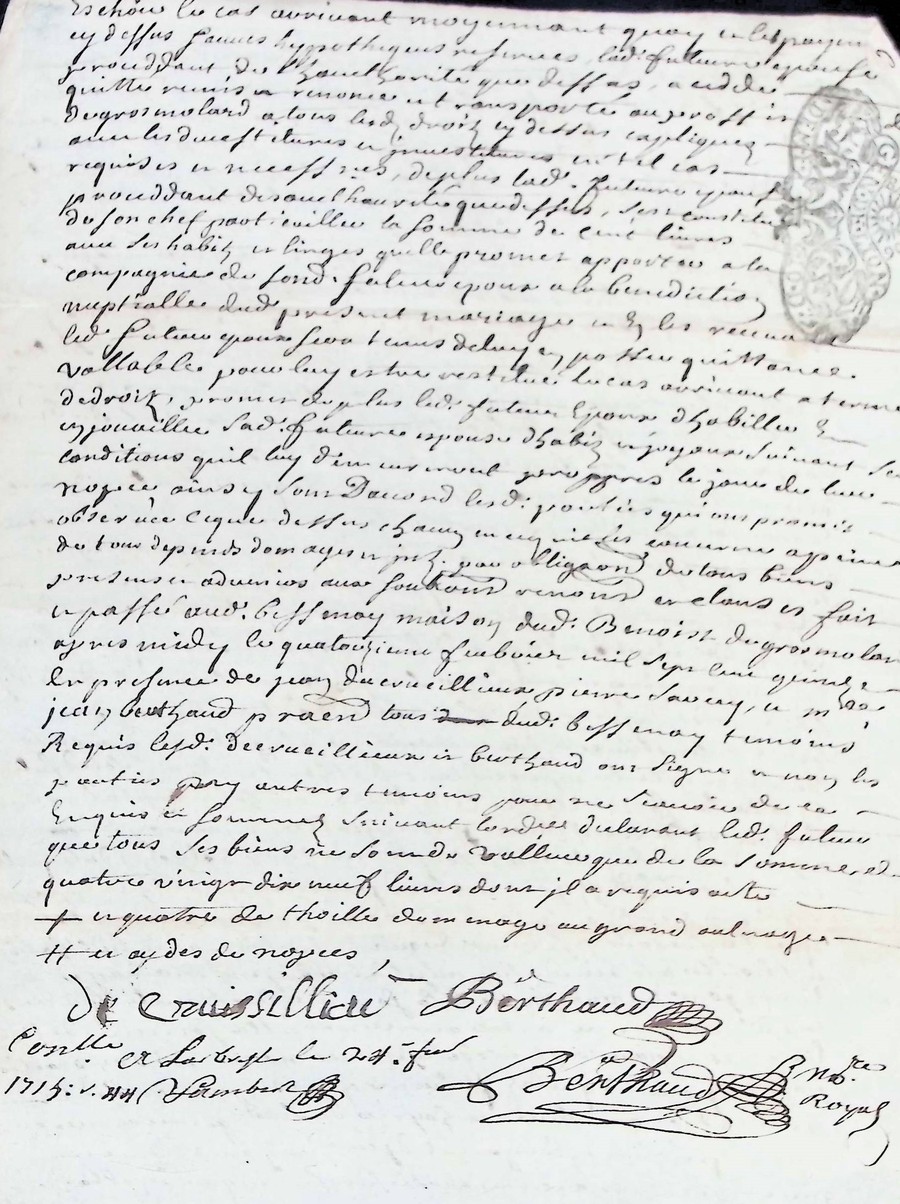 Eschoir le cas arrivant moyennant quoy et les payem
cy dessus sauues hypotheques reservees, lad. future epouse
proceddant de l'hauthorité que dessus, a cedde
quitte remis et renonce et transporte au proffit
Degrosmolard a tous lesd. droitz cy dessus expliquez
auec les deuestitures et jnuestitures en tel cas
requises et necessres, de plus lad. future epouse
proceddant de quelhauthorité que dessus, sest constitue
de son chef particuillier la somme de cent liures
auec ses habitz et linges quelle promet apporter a la
compagnie de sond. futur epoux a la benediction
nuptialle dud. present mariage et en les recevant
led. futur epoux sera tenus deluy en passer quittance
vallable pour luy estre restitué le cas arrivant a terme
de droitz, promet de plus led. futur Epoux dhabiller &
enjouailler sad. future epouse dhabitz et joyaux suivant sa
conditions quil luy demeureront proppres le jour de leur
nopce ainsy sont Daccord lesd. parties qui ont promis
observer ce que dessus chacun en ce qui les concerne a peine
de tous depends domages et jntz. par obligaons de tous biens
presens et aduenirs aux soubons renons et clauses fait
et passé aud. bessenay maison dud. Benoist degrosmolard
apres midy le quatorzieme feubvrier mil sept cent quinze
En presence de jean decruseillieux pierre Savey, et mre
jean berthaud praen tous dud. bessenay temoins
Requis lesd. decruseillieux et berthaud ont signés et non les
parties ny autres temoins pour ne scavoir de ce
Enquis et sommez suivant lordce declarant led. futur
que tous ses biens ne sont de valleur que de la somme de
quatre vingt dix neuf liures dont jl a requis acte
+ et quatre de thoille de menage au grand aulnage
++ et aydes de nopces,
De Cruisillieu Berthaud
Conlle et Larbresle le 24e feu
1715: r. 44s Lambert
Berthaud Nore
Royal